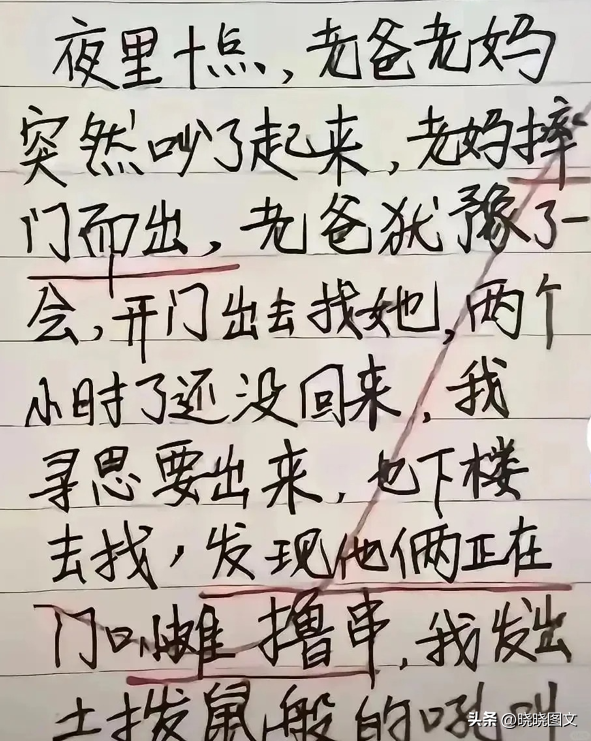 夜里十点，老爸老妈
突然吵了起来，老妈摔
门而出，老爸犹豫了一
会，开门出去找她，两个
小时了还没回来，我
寻思要出来，也下楼
去找，发现他俩正在
门口摊撸串，我发出
土拨鼠般的吼叫
头条 @晓晓图文